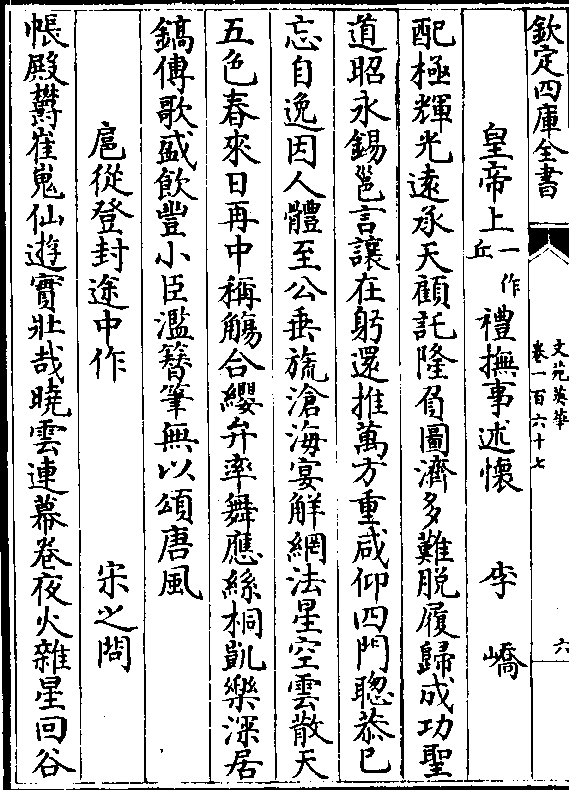 欽定四庫全書
文苑英華
卷一百六十七
六
皇帝上一作丘禮撫事述懷 李嶠
配極輝光遠承天顧託隆負圖濟多難脱履歸成功聖
道昭永錫邕言讓在躬還推萬方重咸仰四門聰恭己
忘自逸因人體至公垂旒滄海宴解網法星空雲散天
五色春來日再中稱觴合纓弁率舞應絲桐凱樂深居
鎬傳歌盛飲豐小臣濫簪筆無以頌唐風
扈從登封途中作 宋之問
帳殿欎崔嵬仙遊實壯哉曉雲連幕卷夜火雜星回谷